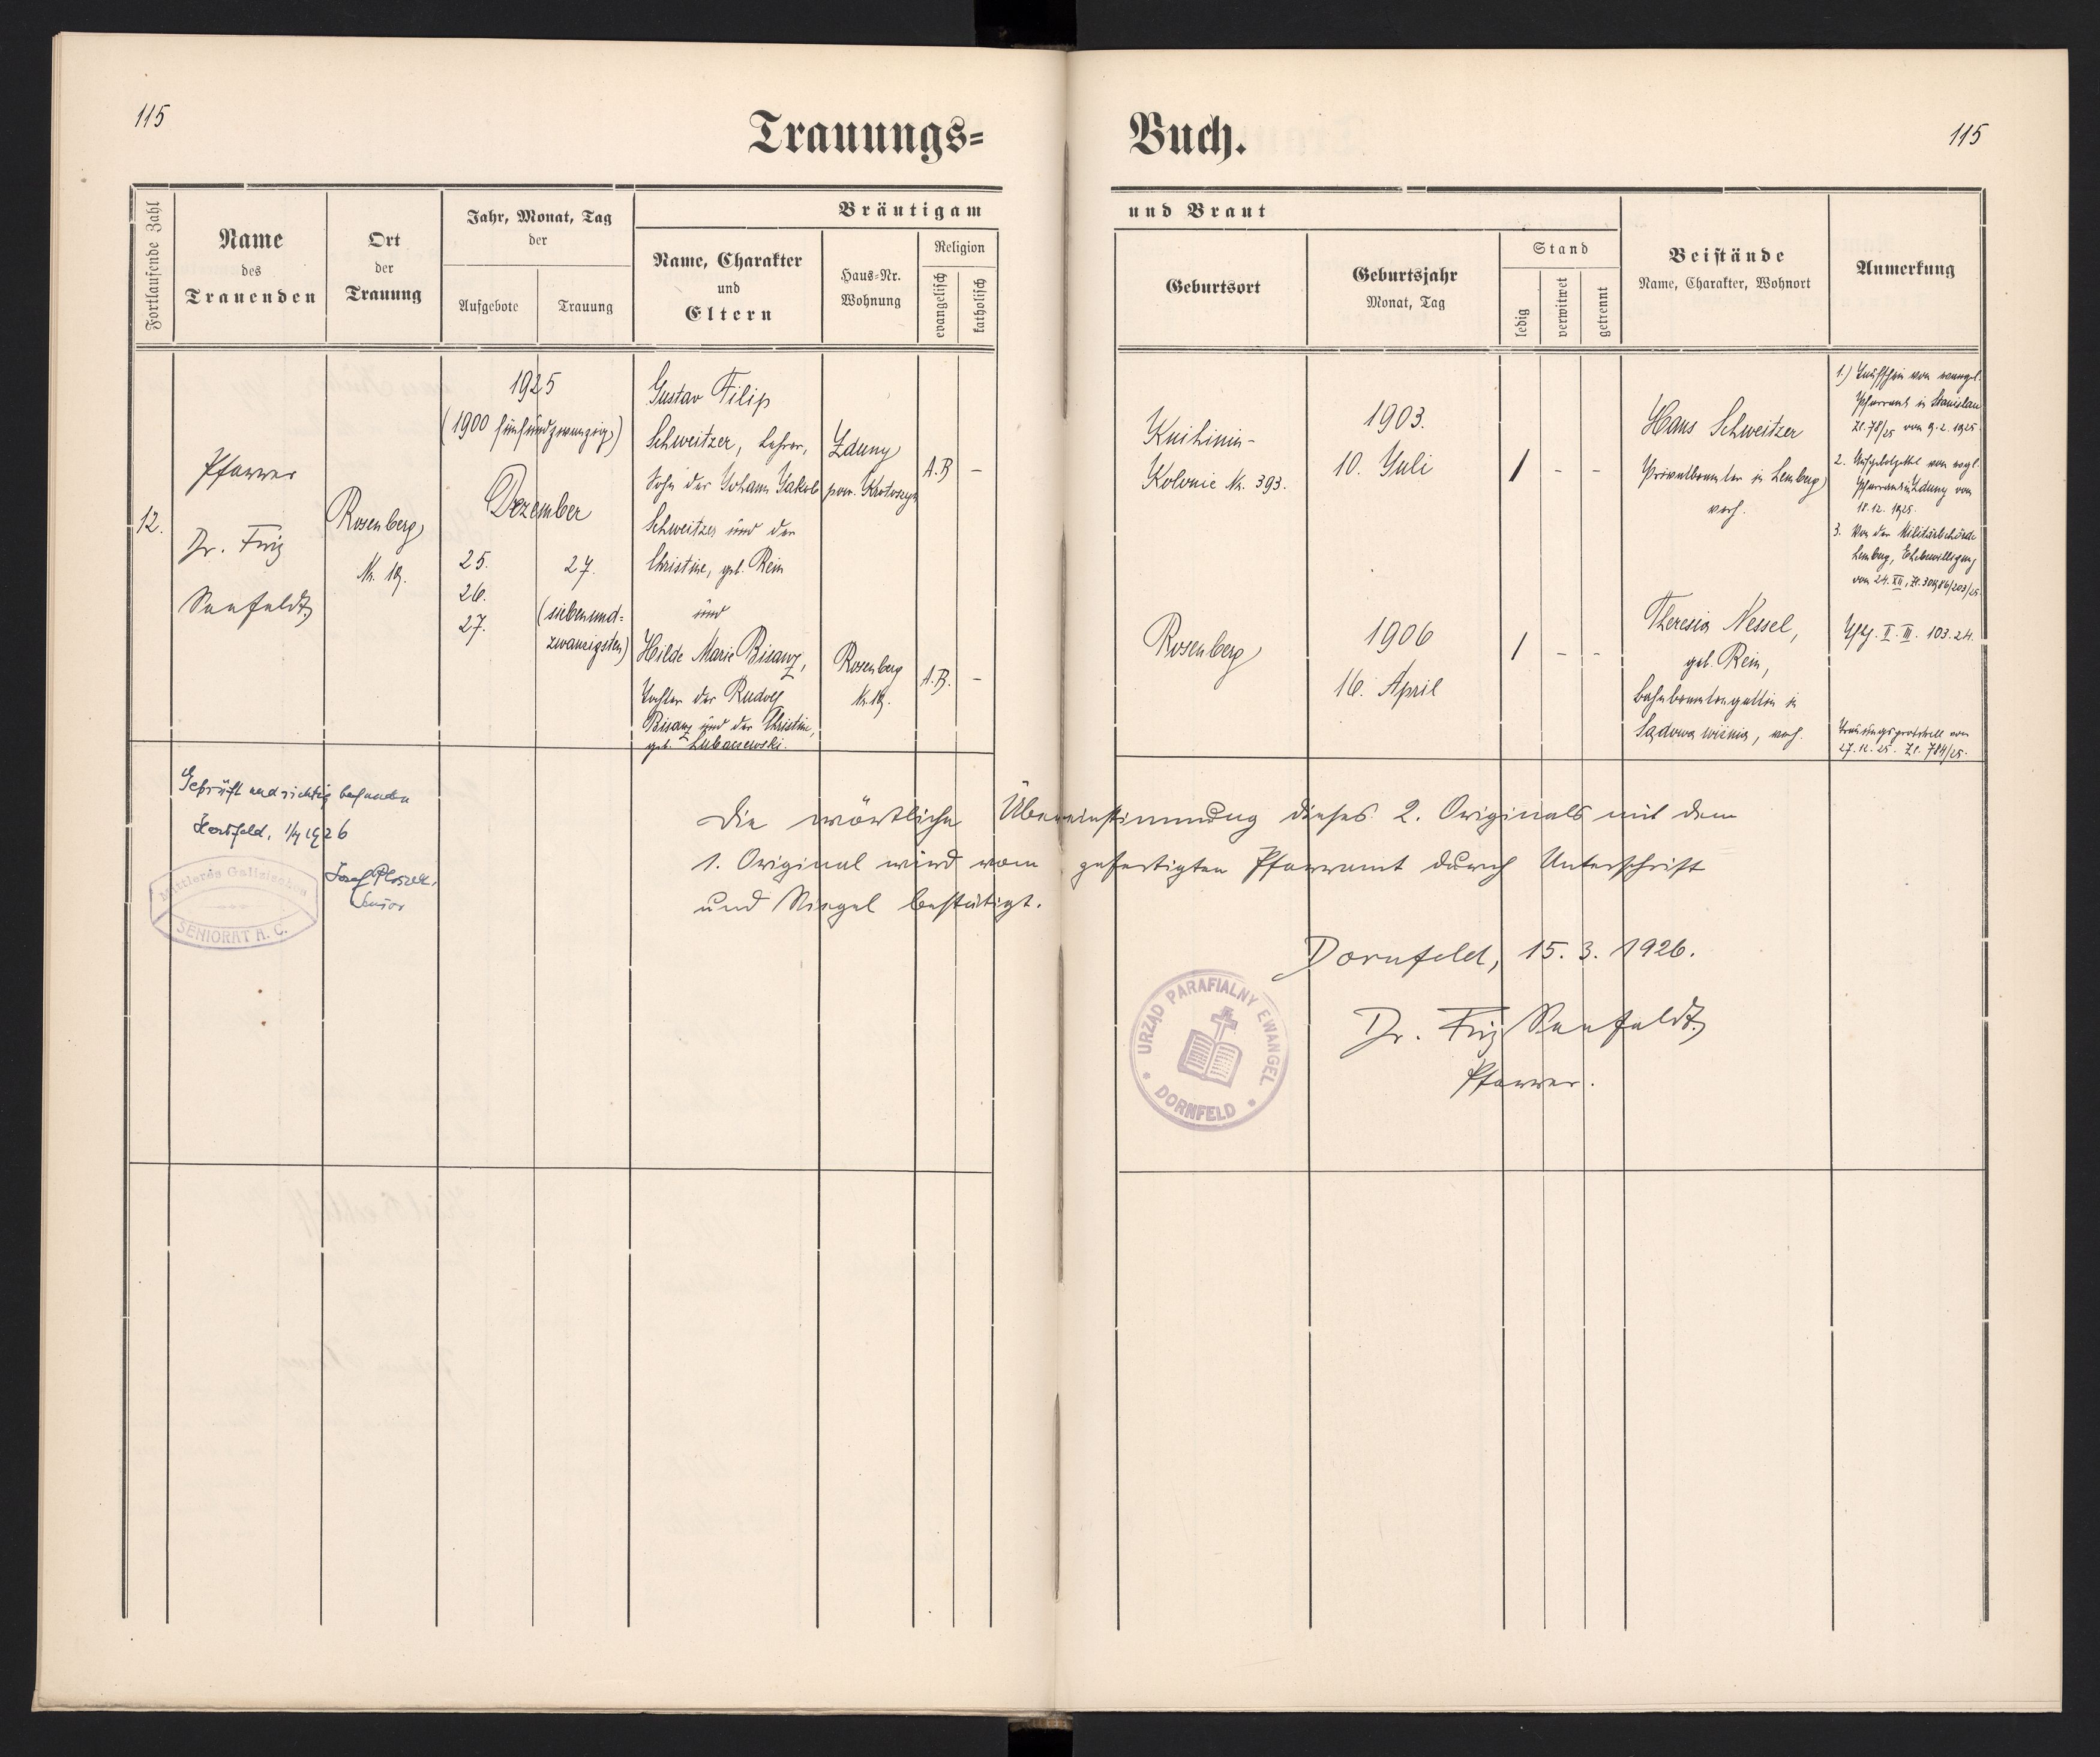 115
Trauungs=
Buch.
115
Fortlaufende Zahl
Name
des
Trauenden
Ort
der
Trauung
Jahr, Monat, Tag
der
Aufgebote
Trauung
Bräutigam
Name, Charakter
und
Eltern
Haus=Nr.
Wohnung
Religion
evangelisch
katholisch
und Braut
Geburtsort
Geburtsjahr
Monat, Tag
Stand
ledig
verwitwet
getrennt
Beistände
Name, Charakter, Wohnort
Anmerkung
12.
Pfarrer
Dr. Friz
Seefeldt
Rosenberg
Nr. 19.
1925
(1900 fünfundzwanzig)
Dezember
25.
26.
27.
27.
(siebenund=
zwanzigsten)
Gustav Filip
Schweitzer, Lehrer,
Sohn des Johann Jakob
Schweitzer und der
Christine, geb. Rein
und
Hilde Marie Bisanz,
Tochter des Rudolf
Bisanz und der Christine,
geb. Lubaczewski.
Zduny
pow. Krotoszyn
A.B
-
Rosenberg
Nr. 19.
A.B.
-
Knihinin-
Kolonie Nr. 393.
1903.
10. Juli
/
-
-
Hans Schweitzer
Privatbeamter in Lemberg
evch.
1.) Taufschein vom evangel.
Pfarramt in Stanislau
Zl. 78/25 vom 9. 2. 1925.
2. Aufgebotzettel vom evgl.
Pfarramt in Zduny vom
18. 12. 1925.
3. Von der Militärbehörde
Lemberg, Ehebewilligung
vom 24. XII, Zl.
Rosenberg
1906
16. April
/
-
-
Theresia Nessel,
geb. Rein,
Bahnbeamtengattin in
Sądowa wisznia, evch.
II. III. 103. 24.
Trauungsprotokoll vom
27. 12. 25. Zl. 784/25.
Geprüft und richtig befunden
1926
Senior
Mittleres Galizisches
SENIORAT A. C.
Die wörtliche Übereinstimmung dieses 2. Originals mit dem
1. Original wird vom gefertigten Pfarramt durch Unterschrift
und Siegel bestätigt.
Dornfeld, 15. 3. 1926.
Dr. Friz Seefeldt
Pfarrer.
URZĄD PARAFIALNY EWANGEL.
DORNFELD